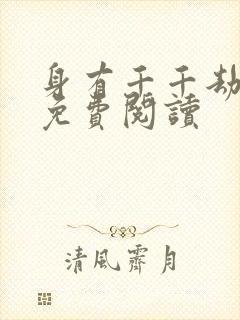 身有千千劫
免費閱讀
清風霽月